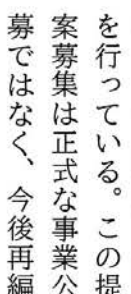 を行っている。この提
案募集は正式な事業公
募ではなく、今後再編